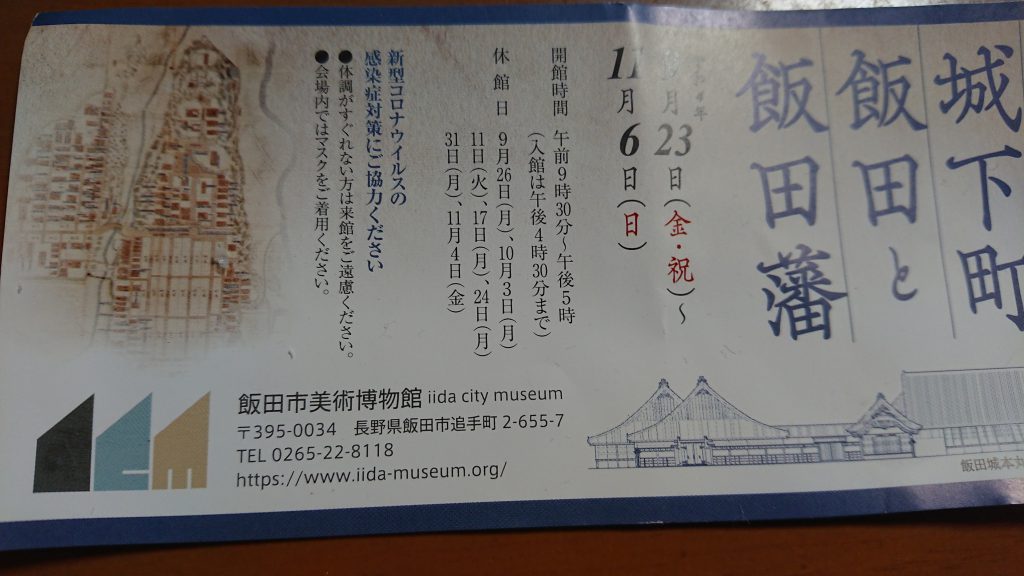 城下町
飯田と
飯田藩
月23日(金・祝)～
11月6日(日)
開館時間 午前9時30分～午後5時
(入館は午後4時30分まで)
休館日 9月26日(月)、10月3日(月)
11日(火)、17日(月)、24日(月)
31日(月)、11月4日(金)
新型コロナウイルスの
感染症対策にご協力ください
●体調がすぐれない方は来館をご遠慮ください。
●会場内ではマスクをご着用ください。
飯田城本丸
飯田市美術博物館 iida city museum
〒395-0034 長野県飯田市追手町 2-655-7
TEL 0265-22-8118
https://www.iida-museum.org/